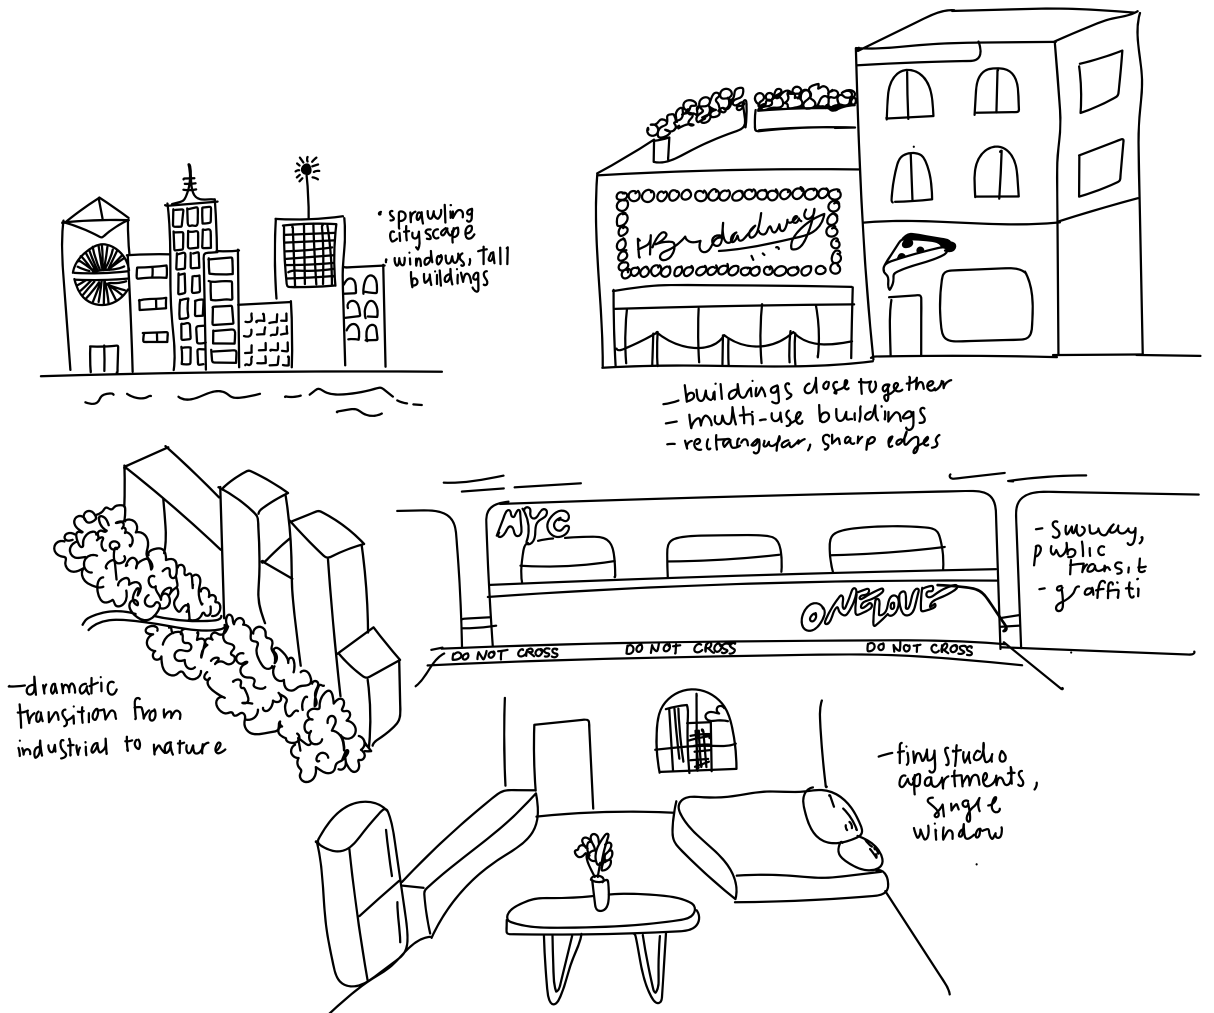 • sprawling
cityscape
• windows, tall
buildings
HBrdadway
- buildings close together
- multi-use buildings
- rectangular, sharp edges
NYC
ONELOVE
DO NOT CROSS DO NOT CROSS DO NOT CROSS
- subway,
public
transit
- graffiti
- dramatic
transition from
industrial to nature
- tiny studio
apartments,
single
window